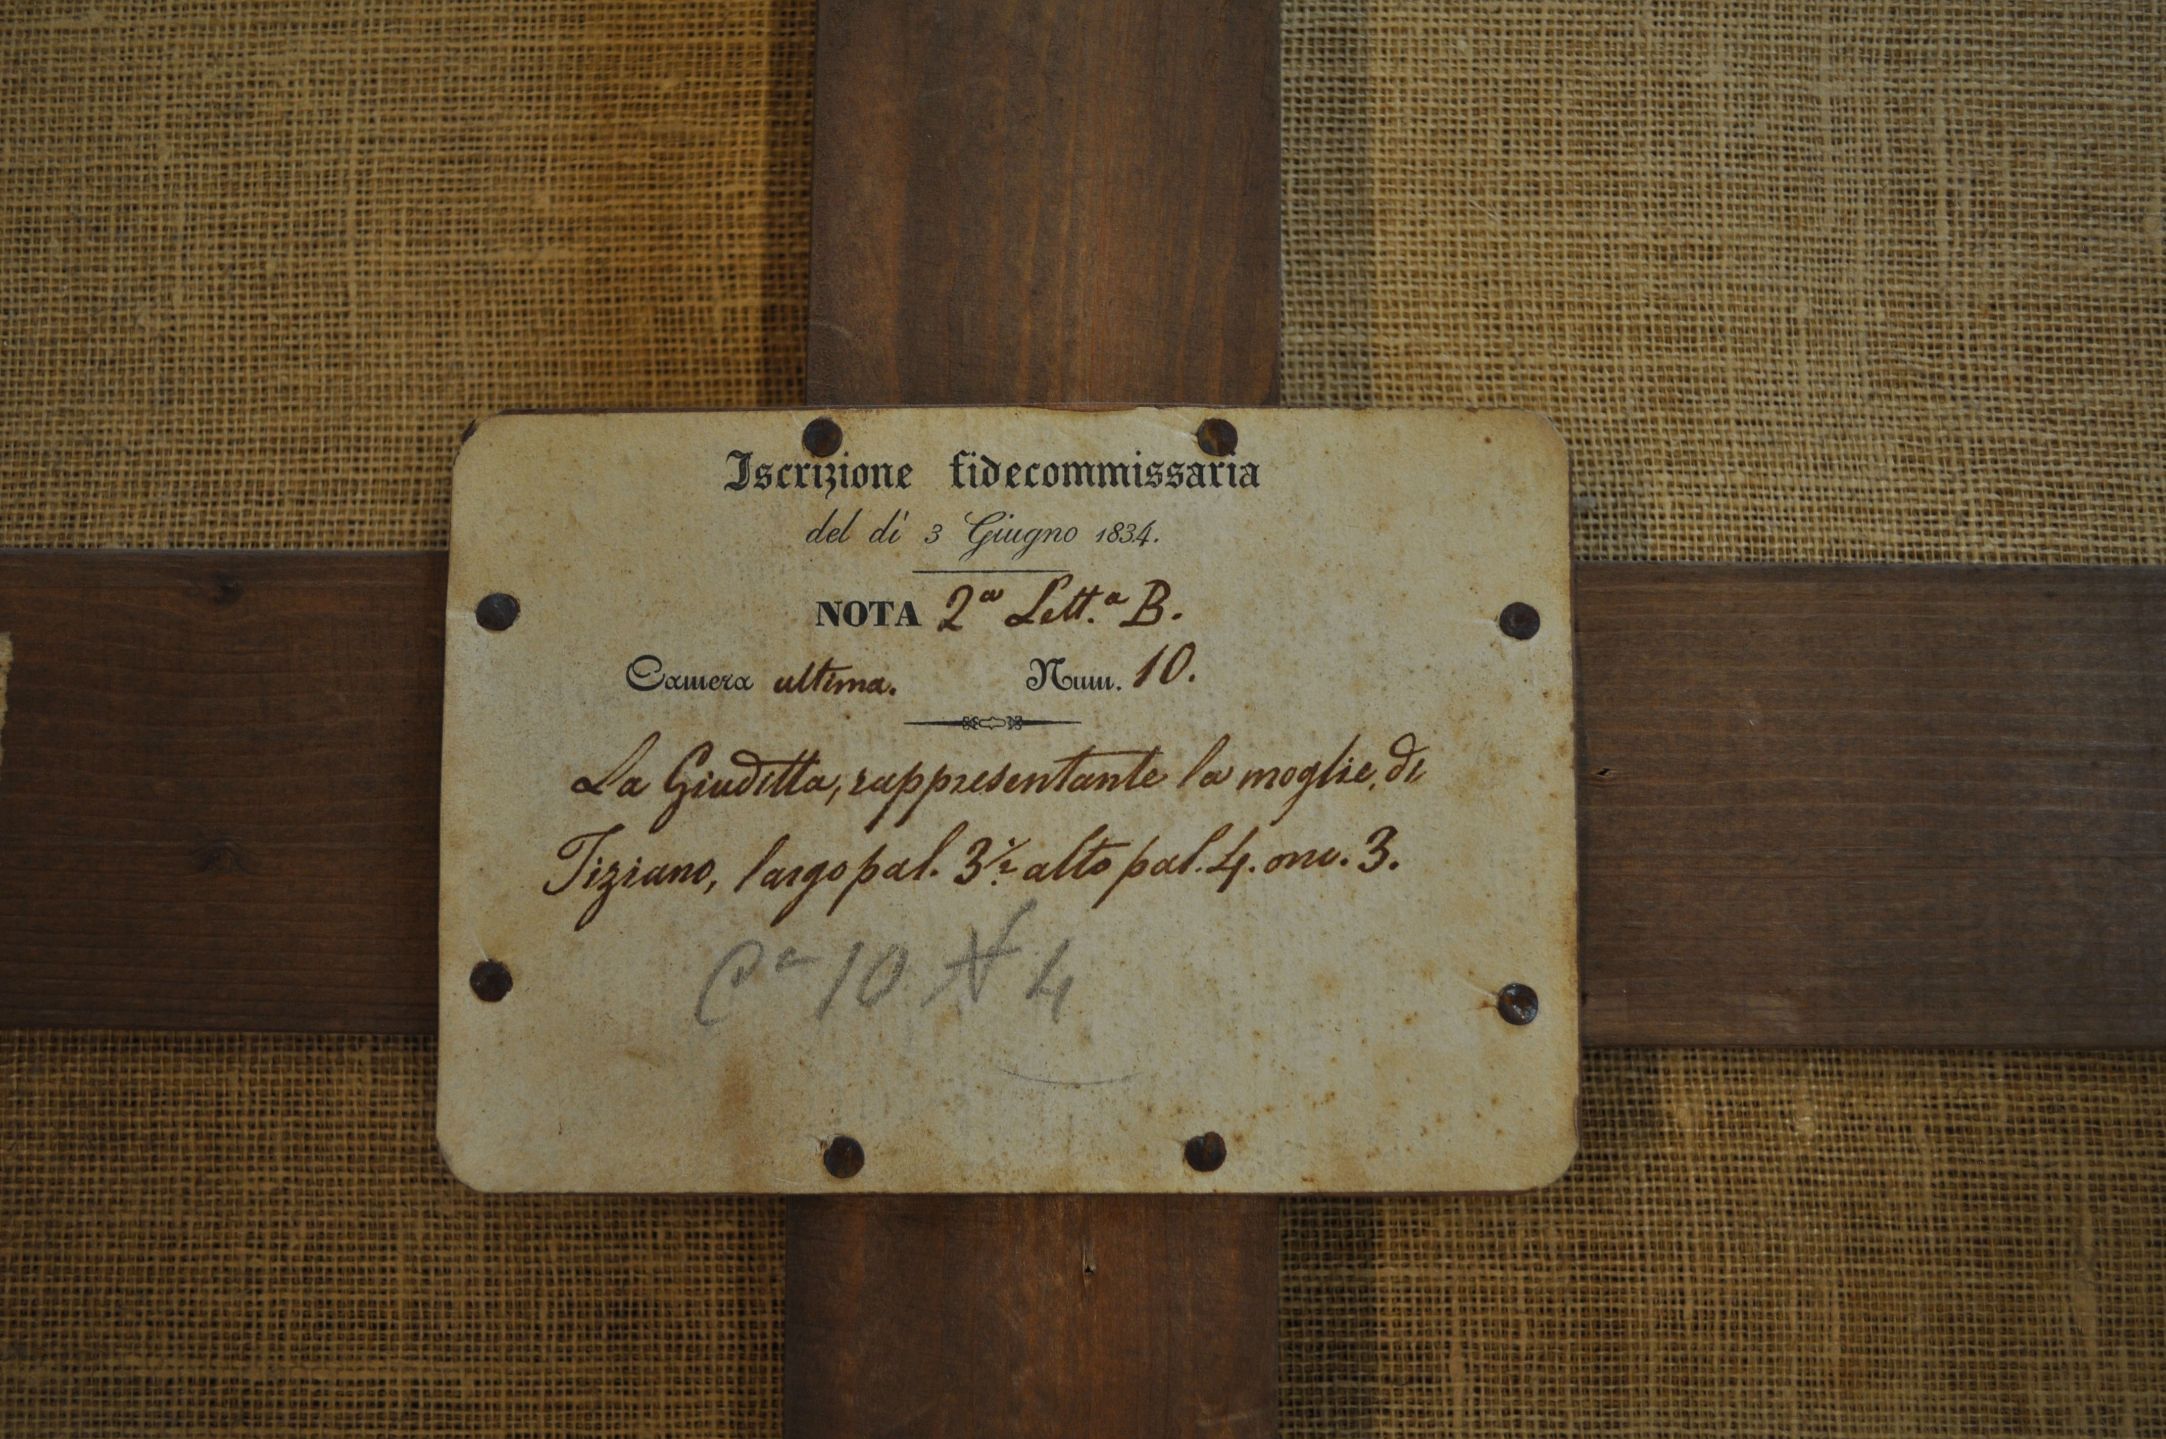 Iscrizione fidecommissaria
del dì 3 Giugno 1834.
NOTA 2ª Lett.ª B.
Camera ultima. Num. 10.
La Giuditta, rappresentante la moglie di
Tiziano, largo pal. 3½ alto pal. 4. onc. 3.
Cª 10 N 4